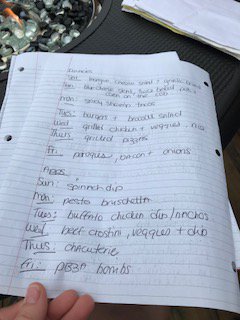 Dinners
Sat: , Caesar salad + garlic bread
Sun: steak, twice baked pots +
corn on the cob
Mon: shrimp tacos
Tues: burgers + broccoli salad
Wed: grilled chicken + veggies, rice
Thurs: grilled pizzas
Fri: perogies, bacon + onions
Apps:
Sun: spinach dip
Mon: pesto bruschetta
Tues: buffalo chicken dip/nachos
Wed: beef crostini, veggies + dip
Thurs: charcuterie
Fri: pizza bombs